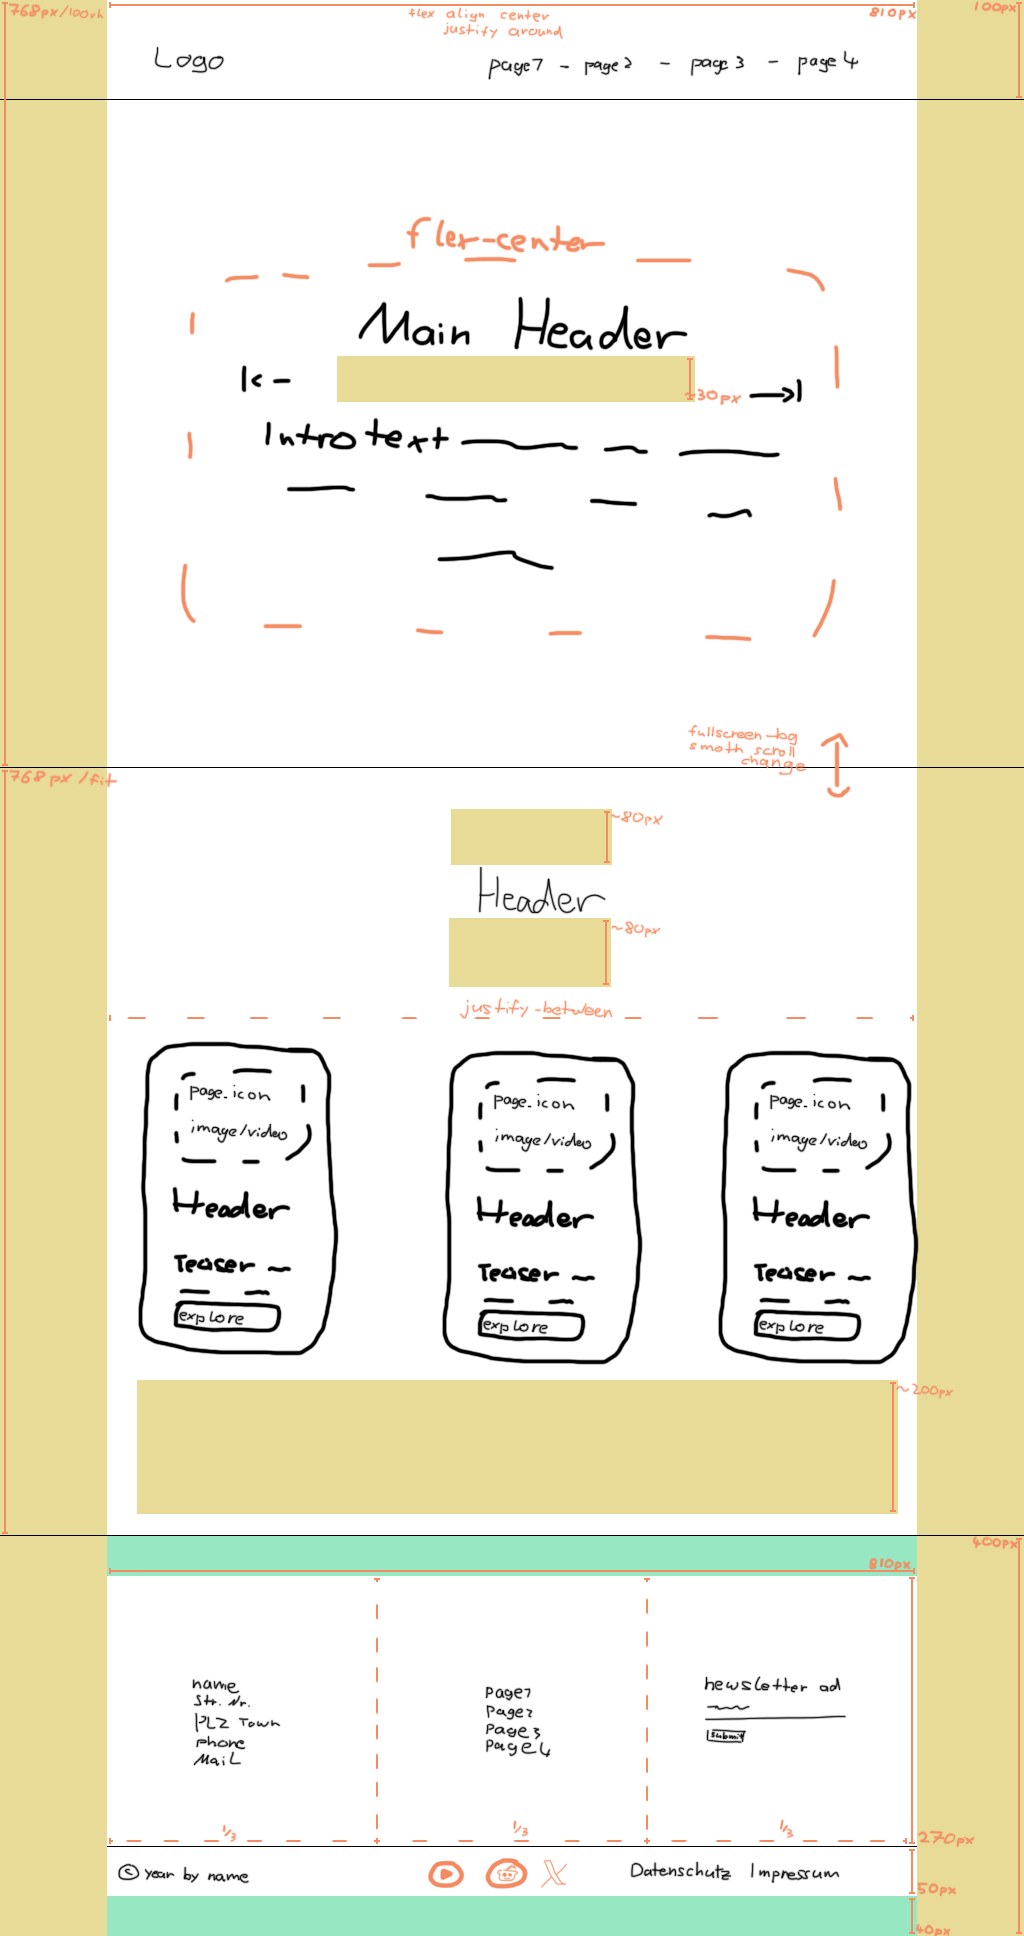 768px/100vh
flex align center
justify around
810px
100px
Logo
page1 - page2 - page3 - page4
flex-center
Main Header
~30px
Introtext
fullscreen-bg
smoth scroll
change
768px/fit
~80px
Header
~80px
justify-between
page_icon
image/video
Header
Teaser
explore
page_icon
image/video
Header
Teaser
explore
page_icon
image/video
Header
Teaser
explore
~200px
400px
810px
name
Str. Nr.
PLZ Town
phone
Mail
Page1
Page2
Page3
Page4
newsletter ad
submit
1/3
1/3
1/3
270px
© year by name
Datenschutz Impressum
50px
40px